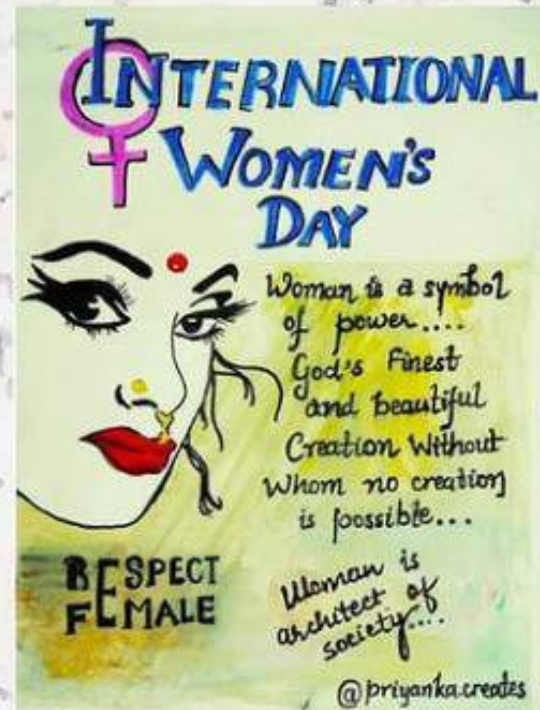 INTERNATIONAL
WOMEN'S
DAY
Woman is a symbol
of power....
God's Finest
and beautiful
Creation Without
Whom no creation
is possible...
RESPECT
FEMALE
Woman is
architect of
society....
@priyanka.creates